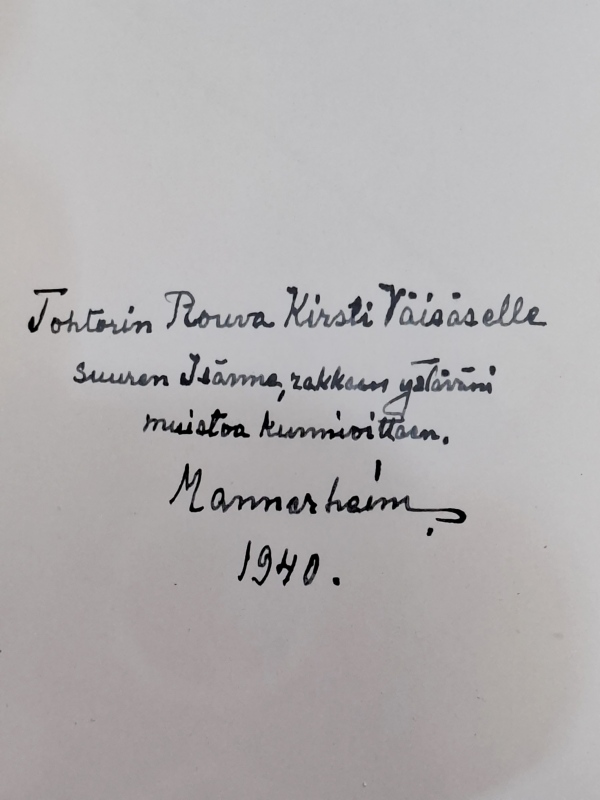 Tohtorin Rouva Kirsti Väisäselle
suuren Isänne, rakkaan ystäväni
muistoa kunnioittaen.
Mannerheim
1940.